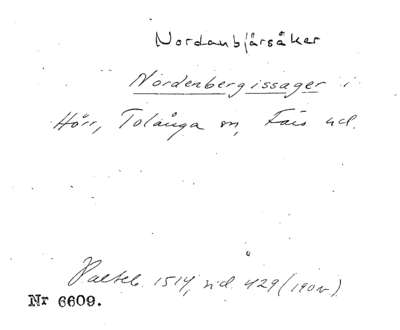 Nordanbjärsåker
Nordenbergissager i
Hörr, Tolånga sn, Färs hd.
Palteb. 1514, sid. 429 (190v).
Nr 6609.